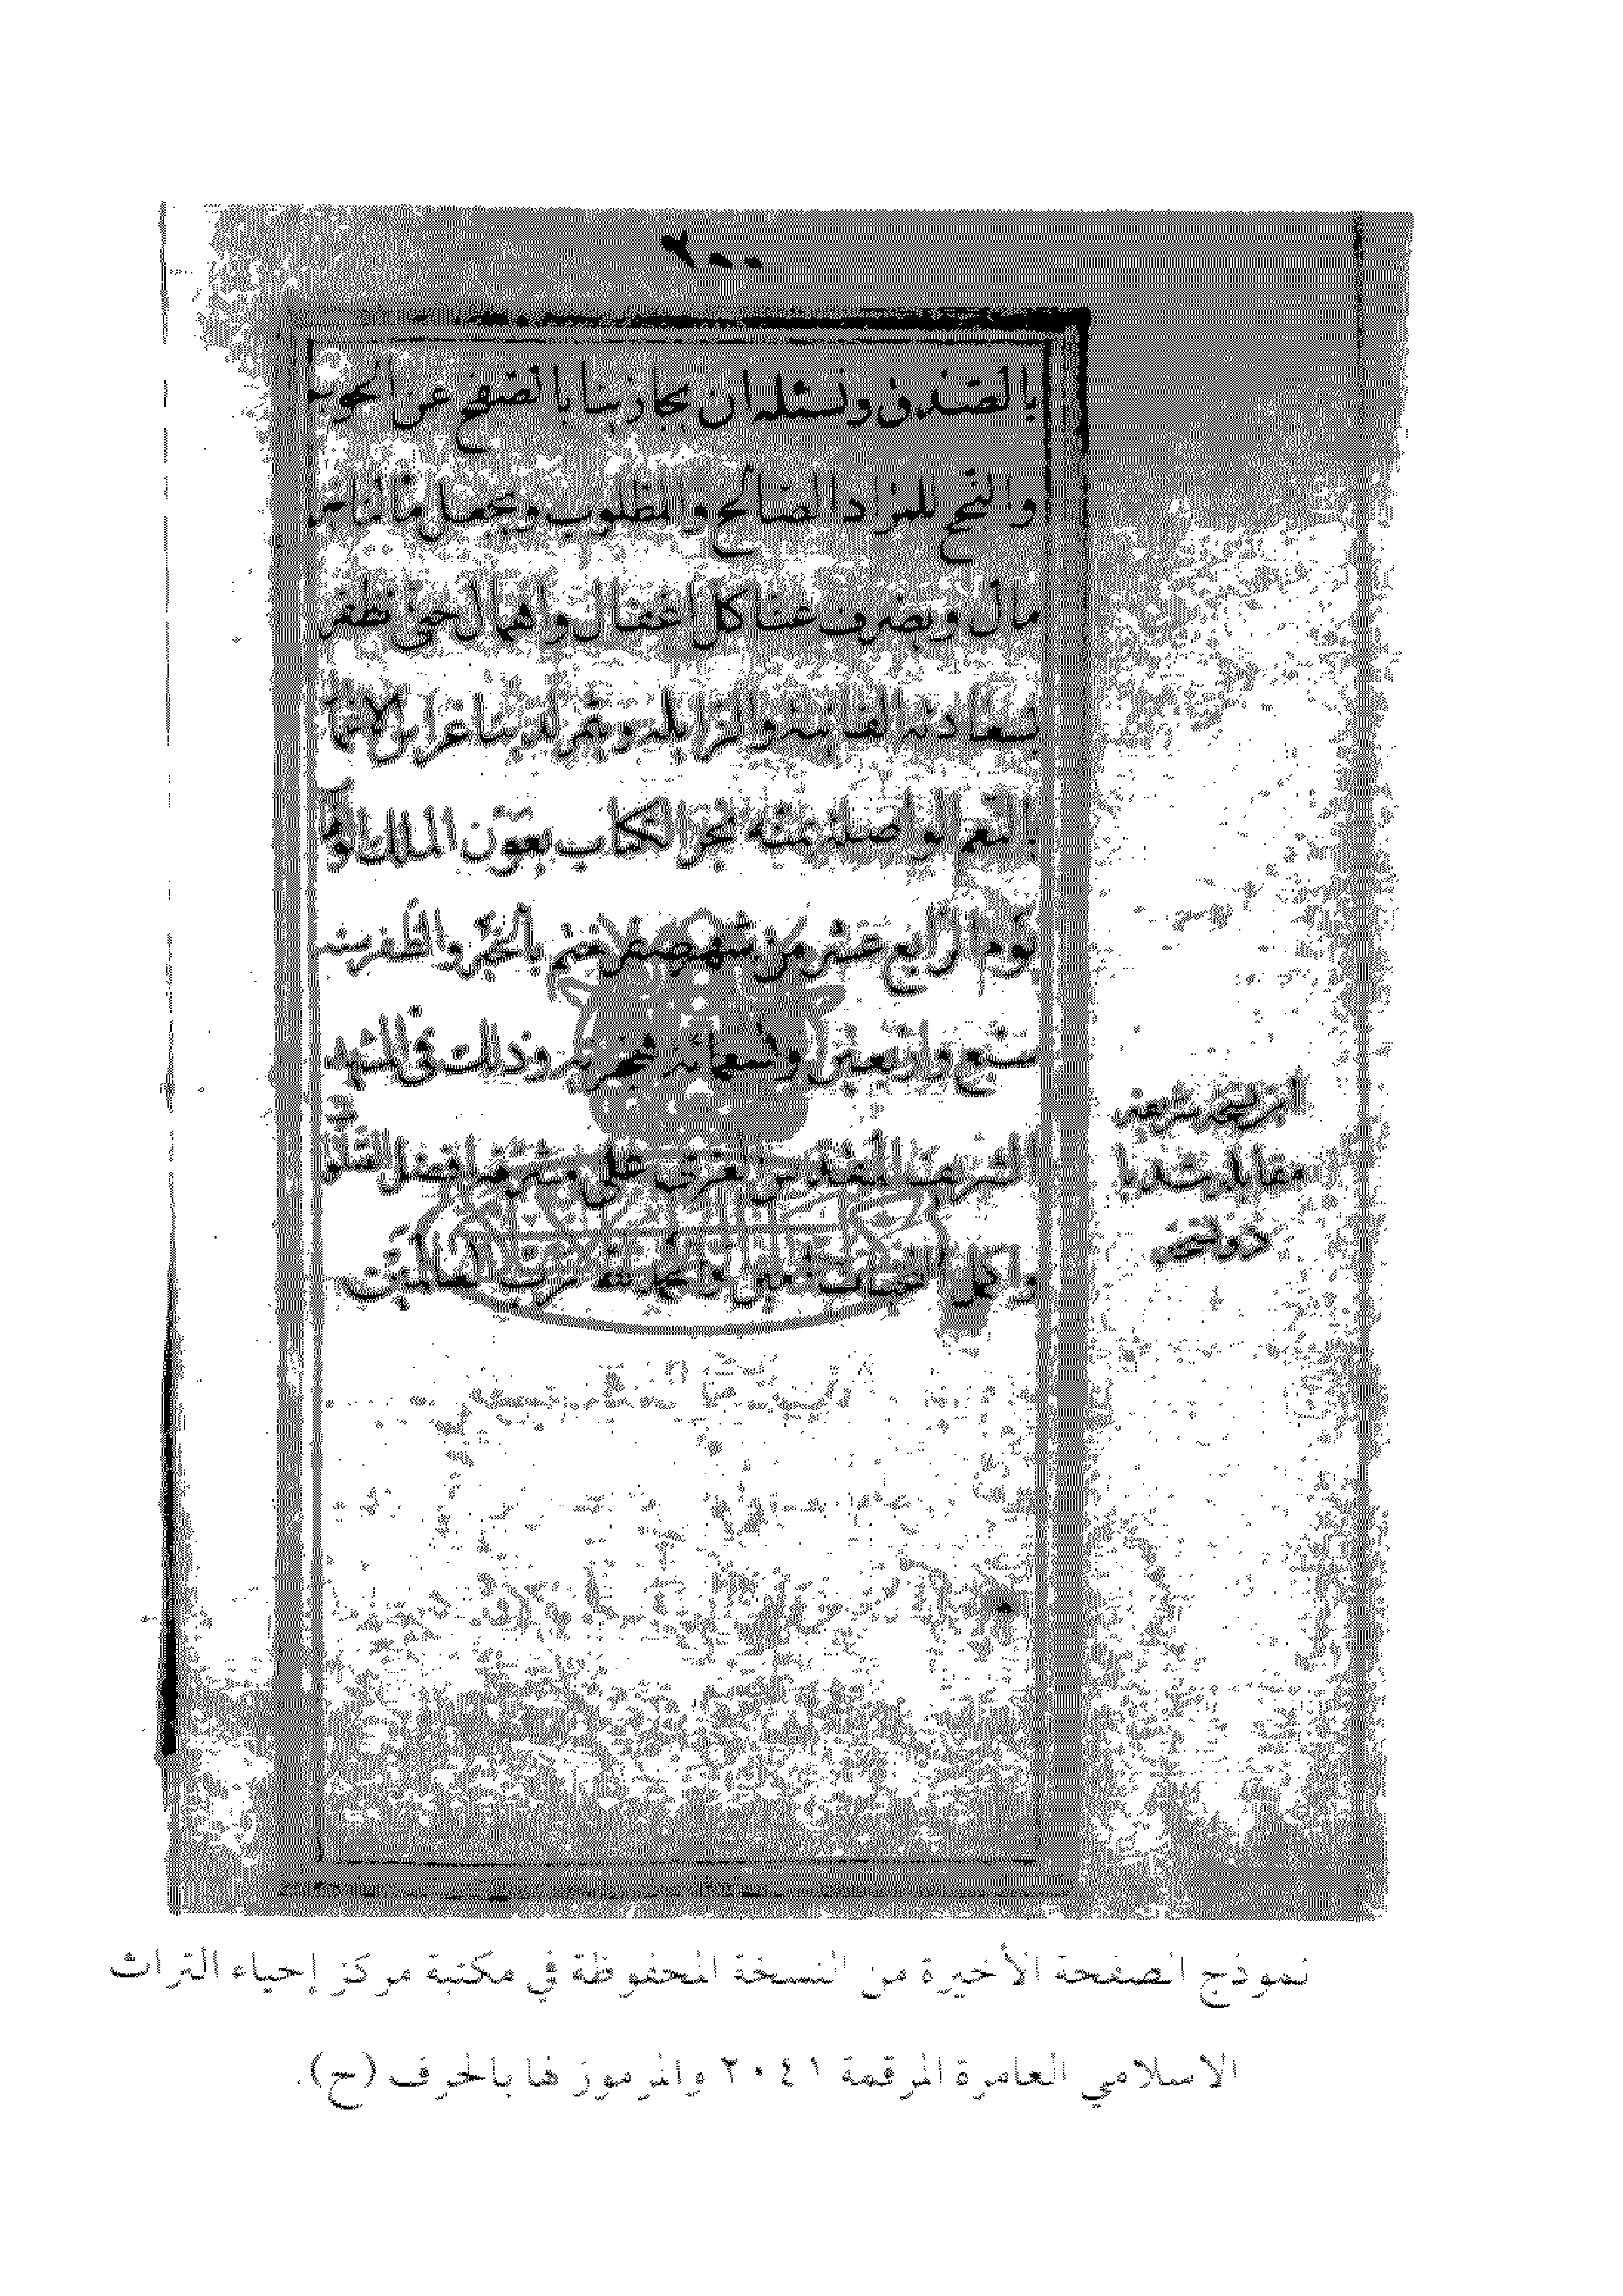 ٢٠٠
بالتصندق ونسئله ان يجازينا بالصفح عن الحوب
والنجح للمراد الصالح والمطلوب ويجعل مالنا خير
مال ويصرف عنا كل اغفال واهمال حتى نظفر
بسعادته الفانية والزايله ويقر لدينا عرايس الانعام
بالنعم الواصلة بمنه نجز الكتاب بعون الملك الوهاب
يوم الرابع عشر من شهر صفر ختم بالخير والظفر سنه
سبع واربعين وتسعمائة هجريه وذلك في المشهد
الشريف المقدس الغروي على مشرفه افضل الصلوة
واكمل التحيات امين والحمد لله رب العالمين
از نسخه شريفه
مقابله شد با
دو نسخه
نموذج الصفحة الأخيرة من النسخة المحفوظة في مكتبة مركز إحياء التراث
الاسلامي العامرة المرقمة ٢٠٤١ والمرموز لها بالحرف (ح).